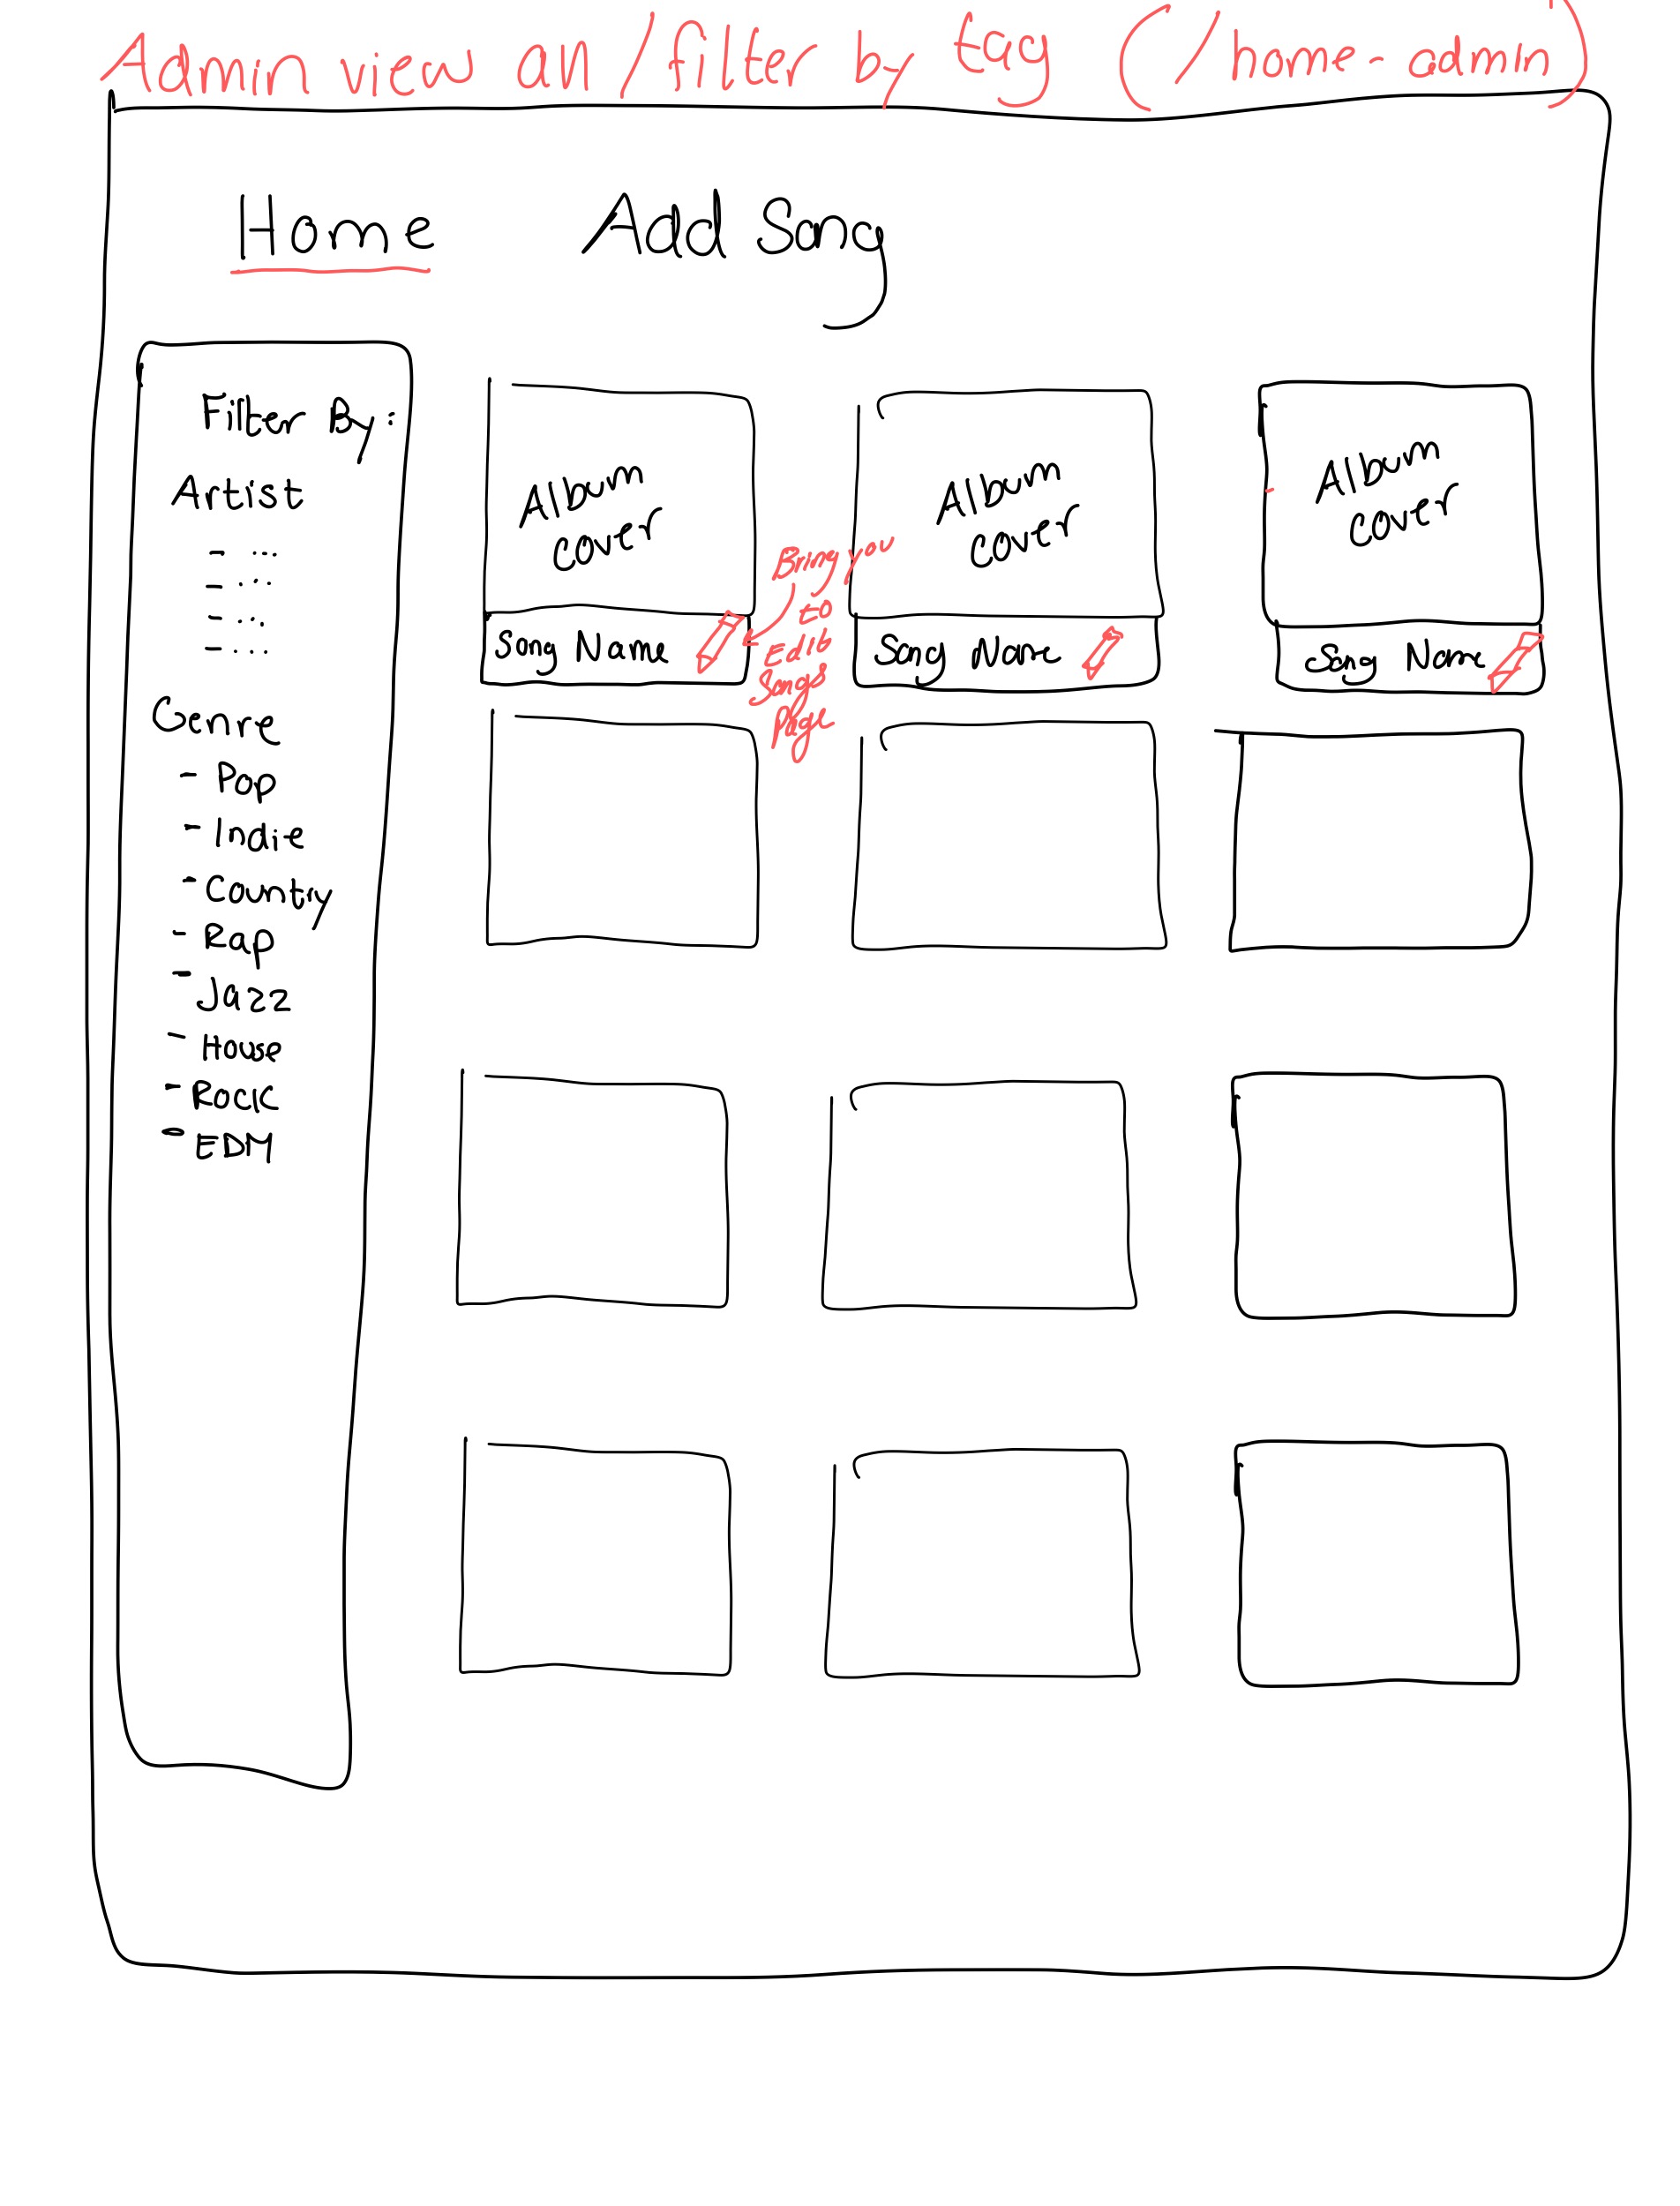 Admin view all / filter by tag (/home-admin)
Home Add Song
Filter By:
Artist
- ...
- ...
- ...
- ...
Genre
- Pop
- Indie
- Country
- Rap
- Jazz
- House
- Rock
- EDM
Album
cover
Song Name
Bring you
to
Edit
Songs
page
Album
cover
Song Name
Album
cover
Song Name